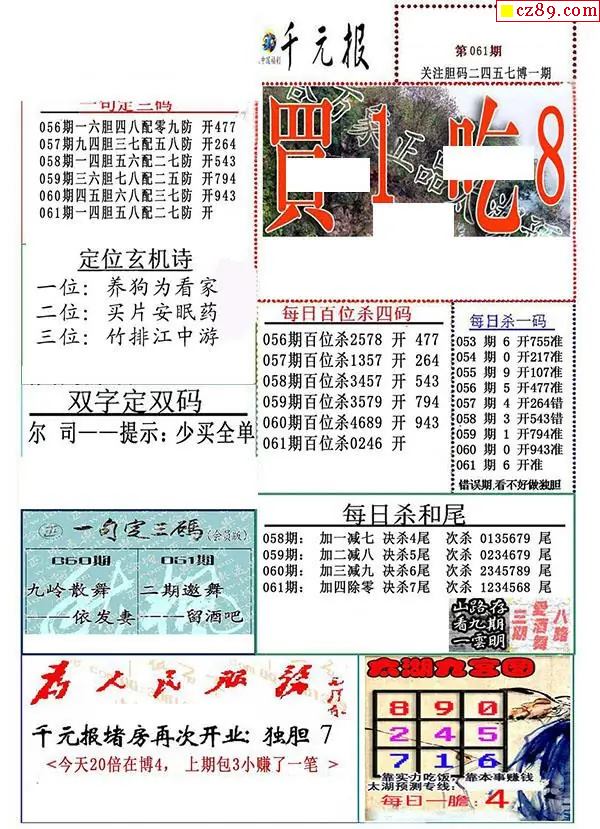 cz89.com
千元报
第061期
关注胆码二四五七博一期
一句定三码
056期一六胆四八配零九防 开477
057期九四胆三七配五八防 开264
058期一四胆五六配二七防 开543
059期三六胆七八配二五防 开794
060期四五胆六七配八三防 开943
061期一四胆五八配二七防 开
買1吃8
定位玄机诗
一位: 养狗为看家
二位: 买片安眠药
三位: 竹排江中游
每日百位杀四码
056期百位杀2578 开 477
057期百位杀1357 开 264
058期百位杀3457 开 543
059期百位杀3579 开 794
060期百位杀4689 开 943
061期百位杀0246 开
每日杀一码
053 期 6 开755准
054 期 0 开217准
055 期 9 开107准
056 期 5 开477准
057 期 4 开264错
058 期 3 开543错
059 期 1 开794准
060 期 0 开943准
061 期 6 开准
错误期,看不好做独胆
双字定双码
尔 司——提示: 少买全单
每日杀和尾
058期: 加一减七 决杀4尾 次杀 0135679 尾
059期: 加二减八 决杀5尾 次杀 0234679 尾
060期: 加三减九 决杀6尾 次杀 2345789 尾
061期: 加四除零 决杀7尾 次杀 1234568 尾
山路存
看九期
一雲明
三湖
愛酒舞
八路
一句定三碼(会员版)
060期
九岭散舞
——依发妻
061期
二期邀舞
——留酒吧
为人民服务
千元报堵房再次开业: 独胆 7
<今天20倍在博4, 上期包3小赚了一笔 >
太湖九宫图
8 9 0
2 4 5
7 1 6
靠实力吃饭,靠本事赚钱
太湖预测专线:
每日一胆: 4